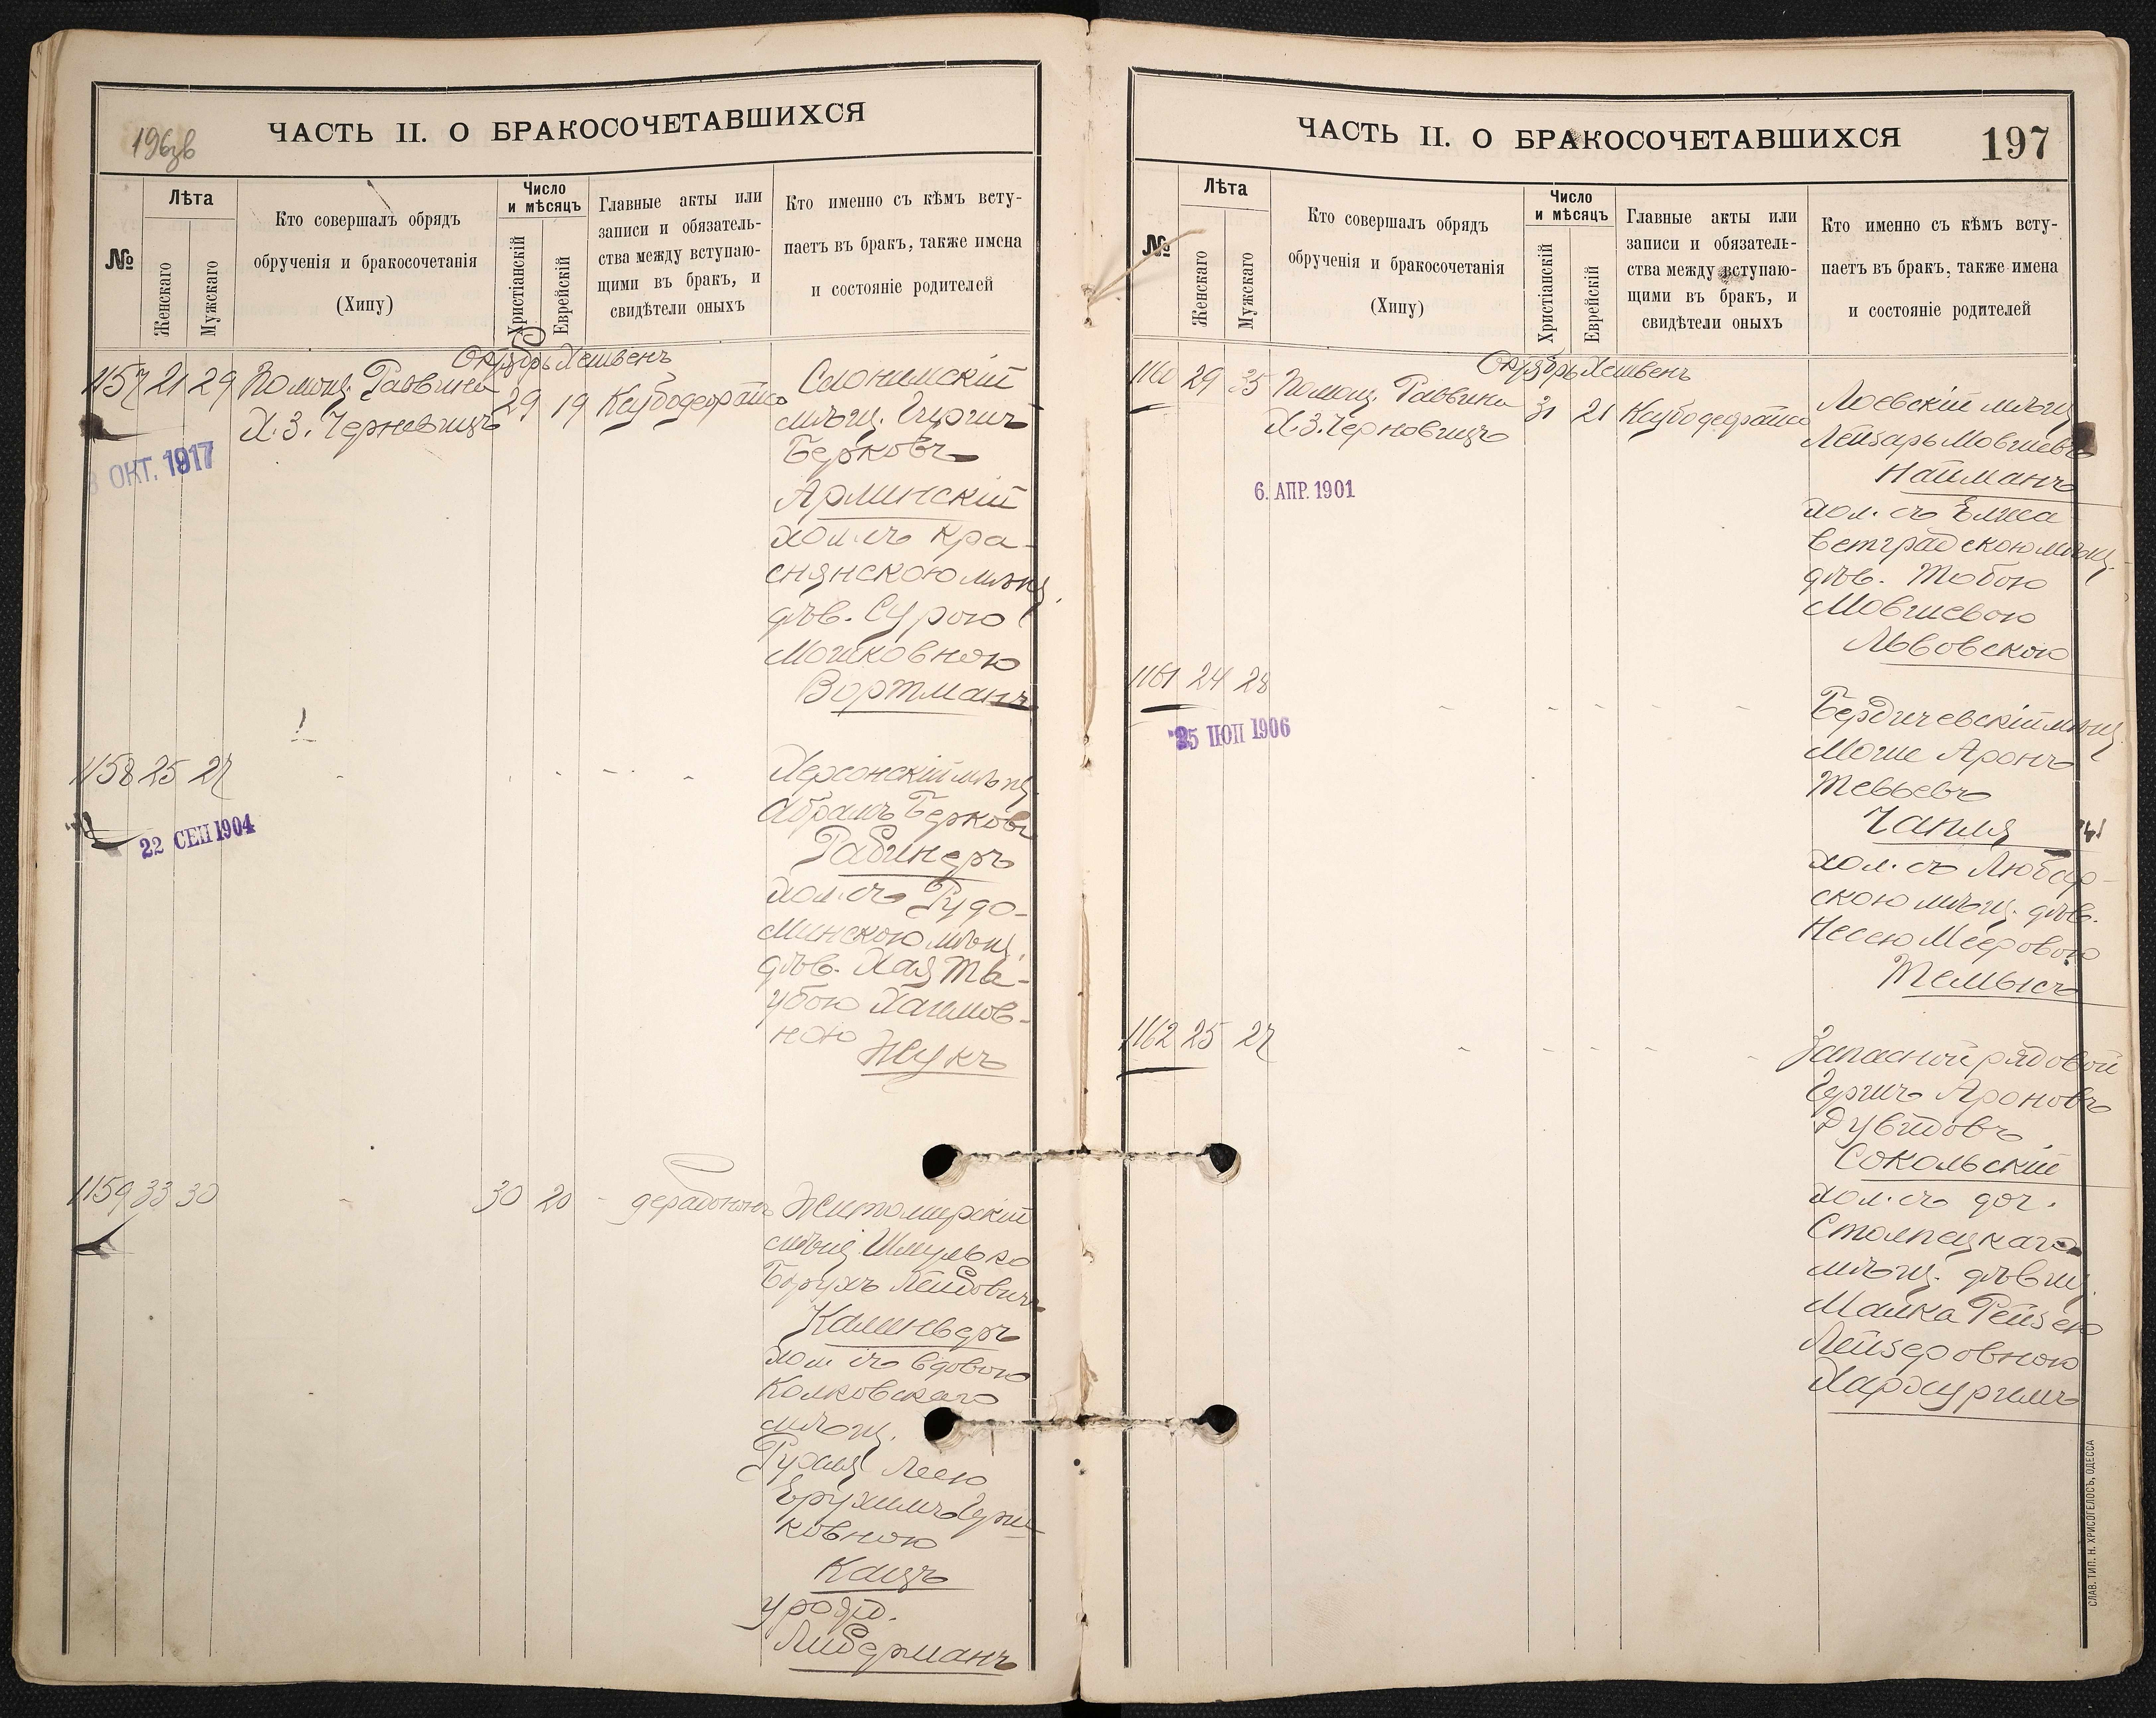 196зв
ЧАСТЬ II. О БРАКОСОЧЕТАВШИХСЯ
№
Лѣта
Женскаго
Мужскаго
Кто совершалъ обрядъ
обрученія и бракосочетанія
(Хипу)
Число
и мѣсяцъ
Христіанскій
Еврейскій
Главные акты или
записи и обязатель-
ства между вступаю-
щими въ бракъ, и
свидѣтели оныхъ
Кто именно съ кѣмъ всту-
паетъ въ бракъ, также имена
и состояніе родителей
Октябрь Хешвенъ
1157 21 29 Помощ. Раввина
Х.З. Черновицъ
29 19
Слонимскій
мѣщ. Гиршъ
Берковъ
Арлинскій
хол. съ Кра-
снянскою мѣщ.
дѣв. Сурою
Мошковною
Вортманъ
8 ОКТ. 1917
1158 25 27
Херсонскій мѣщ.
Абрамъ Берковъ
Рабинеръ
хол. съ Рудо-
минскою мѣщ.
дѣв. Хая Та-
убою Хаимов-
ною
Жукъ
22 СЕП 1904
1159 33 30
30 20
Житомирскій
мѣщ. Шмулько
Борухъ Лейбовичъ
хол съ вдовою
Колковскаго
мѣщ.
Рухля Леею
ковною
Кацъ
урожд.
Либерманъ
ЧАСТЬ II. О БРАКОСОЧЕТАВШИХСЯ
197
№
Лѣта
Женскаго
Мужскаго
Кто совершалъ обрядъ
обрученія и бракосочетанія
(Хипу)
Число
и мѣсяцъ
Христіанскій
Еврейскій
Главные акты или
записи и обязатель-
ства между вступаю-
щими въ бракъ, и
свидѣтели оныхъ
Кто именно съ кѣмъ всту-
паетъ въ бракъ, также имена
и состояніе родителей
Октябрь Хешвенъ
1160 29 35 Помощ. Раввина
Х.З. Черновицъ
31 21
Лоевскій мѣщ
Лейзаръ Мовшевъ
Найманъ
хол. съ Елиса
ветградскою мѣщ.
дѣв. Тобою
Мовшевою
Львовскою
6. АПР. 1901
1161 24 28
Бердичевскій мѣщ.
Моше Аронъ
Тевьевъ
Чапля
хол. съ Любар-
скою мѣщ. дѣв.
Несею Мееровою
25 1906
1162 25 27
Запасной рядовой
Гершъ Ароновъ
Дувидовъ
Сокольскій
хол. съ доч.
Столпецкаго
мѣщ. дѣвиц.
Малка Рейзею
Лейзеровною
СЛАВ. ТИП. Н. ХРИСОГЕЛОСЪ, ОДЕССА